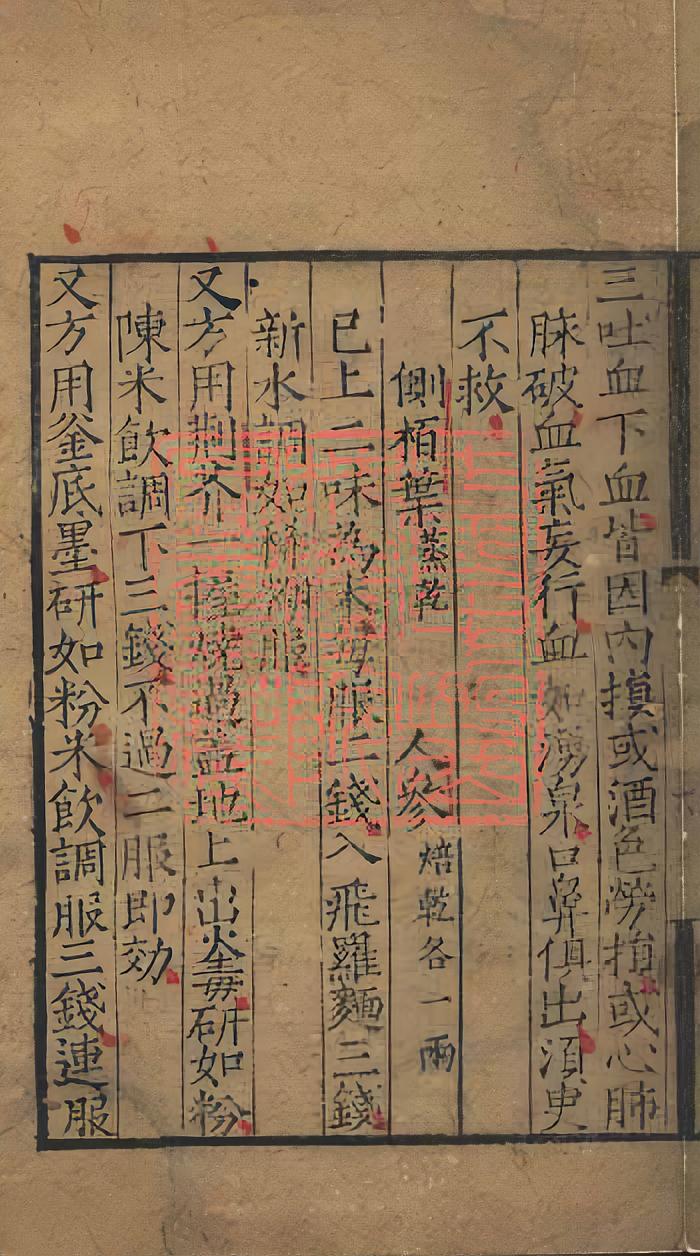 三吐血下血皆因内損或酒色勞損或心肺
脉破血氣妄行血如湧泉口鼻俱出須臾
不救
側栢葉蒸乾 人參焙乾各一兩
已上二味為末每服二錢入飛羅麵三錢
新水調如稀糊服
又方用荆芥一握燒過盖地上出火毒研如粉
陳米飲調下三錢不過二服即効
又方用釜底墨研如粉米飲調服三錢連服